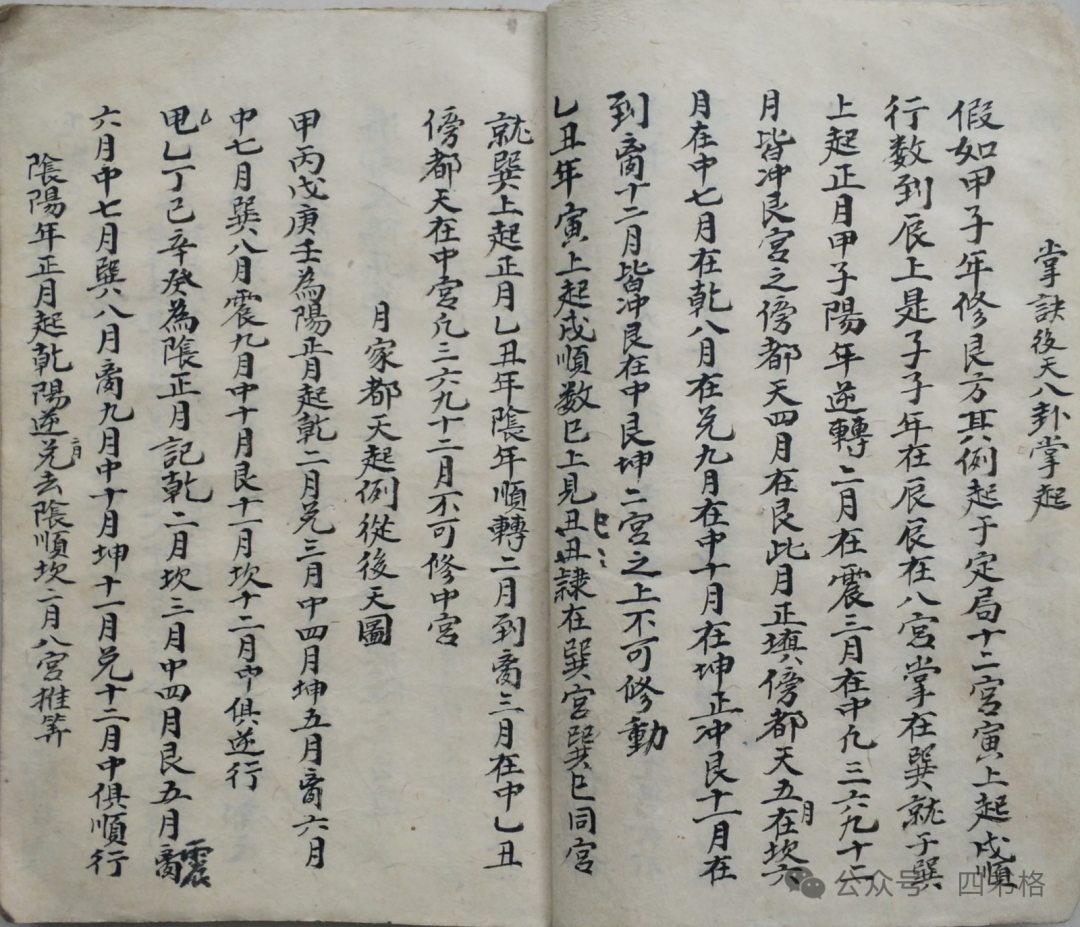 掌訣後天八卦掌起
假如甲子年修艮方其例起于定局十二宮寅上起戌順
行数到辰上是子子年在辰辰在八宮掌在巽就于巽
上起正月甲子陽年逆轉二月在震三月在中凢三六九十二
月皆冲艮宮之傍都天四月在艮此月正塡傍都天五月在坎六
月在中七月在乾八月在兌九月在中十月在坤正冲艮十一月在
到离十二月皆冲艮在中艮坤二宮之上不可修動
乚丑年寅上起戌順数巳上見丑丑隷在巽宮巽巳同宮
就巽上起正月乚丑年隂年順轉二月到离三月在中乚丑
傍都天在中宮凢三六九十二月不可修中宮
月家都天起例從後天圖
甲丙戊庚壬為陽正月起乾二月兌三月中四月坤五月离六月
中七月巽八月震九月中十月艮十一月坎十二月中俱逆行
乚丁己辛癸為隂正月記乾二月坎三月中四月艮五月震
六月中七月巽八月离九月中十月坤十一月兌十二月中俱順行
隂陽年正月起乾陽逆兌二月去隂順坎二月八宮推筭
公众号 四弟格